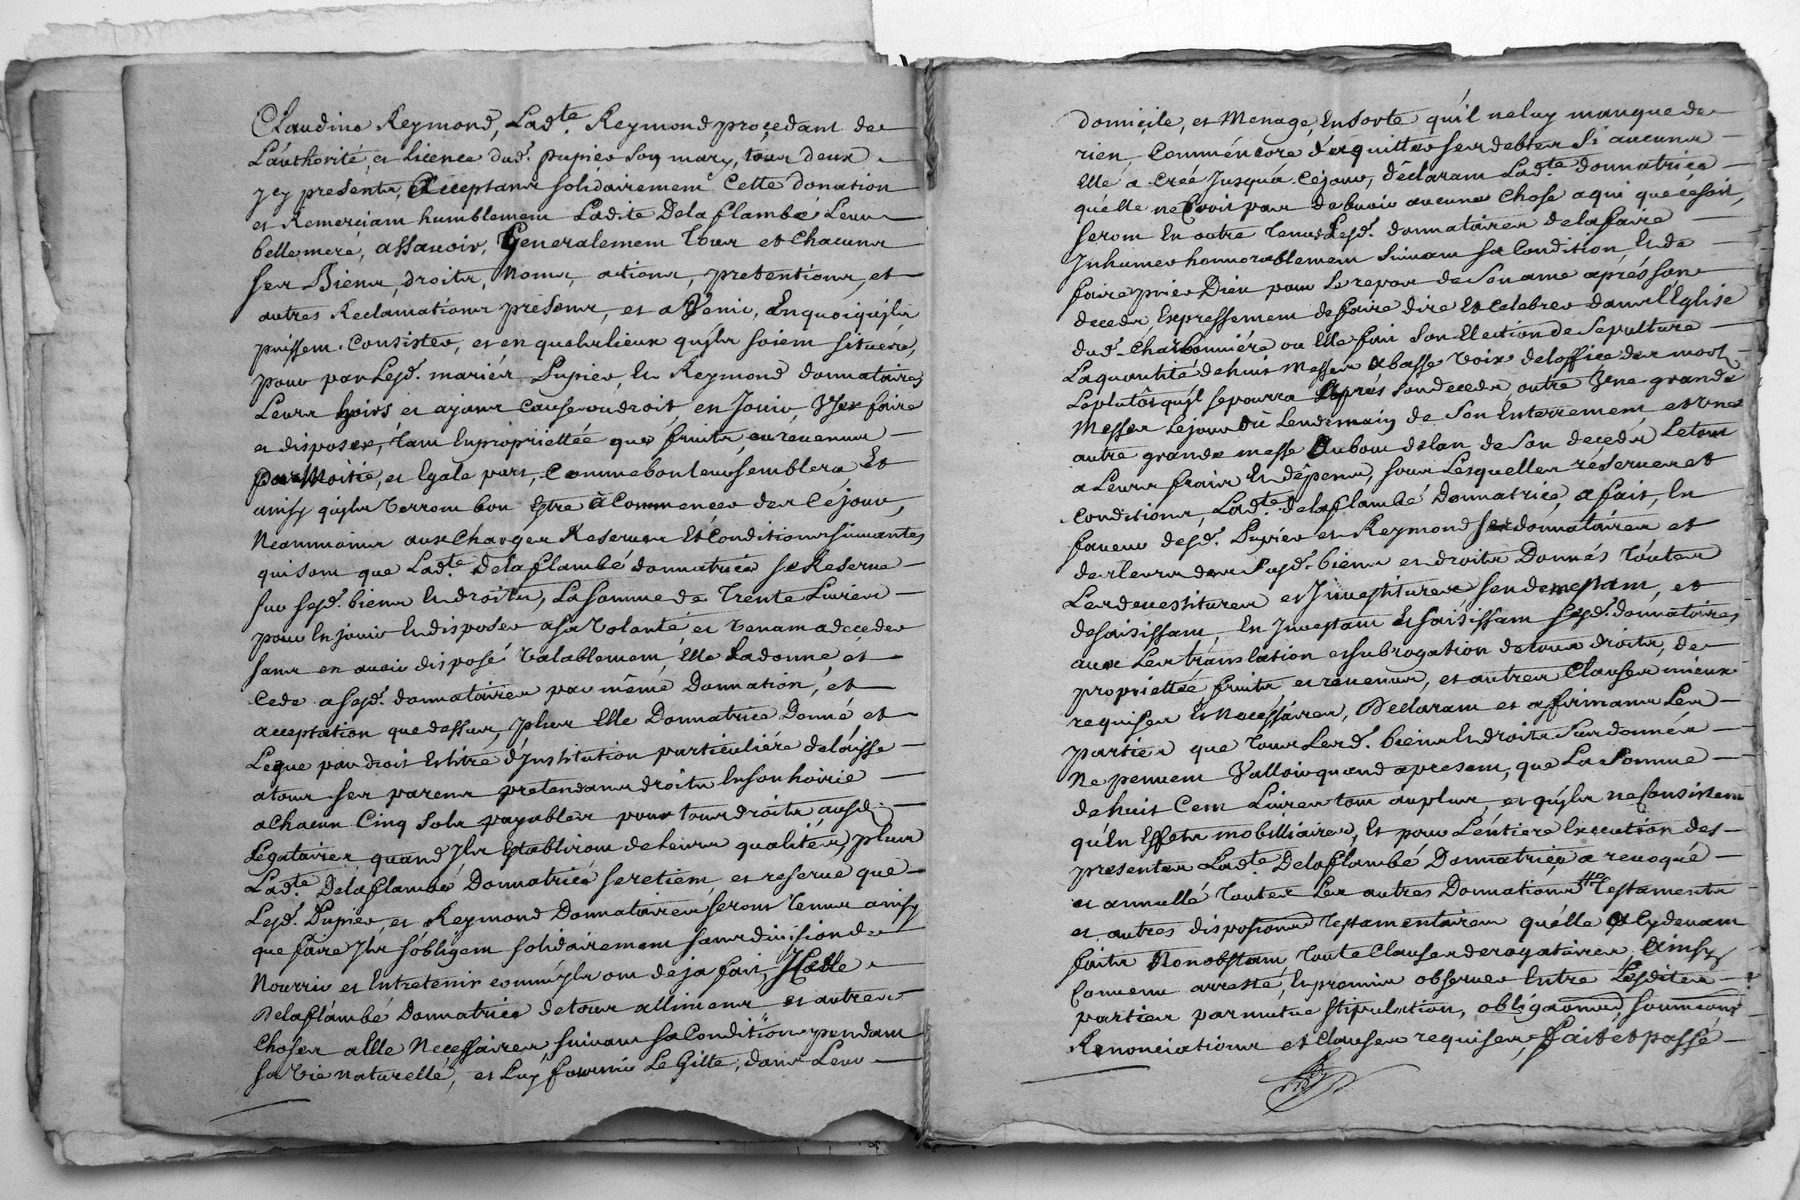 Claudine Reymond, Ladte. Reymond procedant de
L'authorité et licence dud. pupier son mary, tous deux
jcy presents, Acceptans solidairement Cette donation
et Remerciant humblement Ladite Delaflambé Leur
bellemere, assavoir, Generalement Tous et Chacuns
ses Biens, droits, Noms, actions, pretentions, et
autres Reclamations presens, et aVenir, Enquoiqu'jls
puissent Consister, et en quels lieux qu'jls soient situés,
pour par Lesd. mariés Pupier, et Reymond donnataires
Leurs hoirs et ayans cause ou droit, en Jouir, User faire
et disposer, tant Enpropriettée que fruits, ou revenus
Par Moitié, et Egale part, Comme bon leur semblera Et
ainsy qu'jls Verront bon Estre à Commencer des Cejour,
Neanmoins aux Charges Reserves Et Conditions suivantes
qui sont que Ladte. Delaflambé donnatrice se Reserve
sur sesd. biens Et droits, La somme de Trente Livres
pour En jouir Et disposer asa Volonté et Venant adeceder
sans en avoir disposé Valablement, Elle La donne et
Cede asesd. donnataires par même Donnation, et
acceptation que dessus, plus Elle Donnatrice Donne et
Legue par droit Et titre d'Institution particuliére delaisse
atous ses parens pretendans droits Ensonhoirie
a chacun Cinq sols payables pour tous droits, ausd.
Legataires quand Jls Establiront de Leurs qualités, plus
Ladte. Delaflambé Donnatrice se retient et reserve que
Lesd. Pupier, et Reymond Donnataires seront Tenus ainsy
que faire Jls s'obligent solidairement sans division de
Nourrir et Entretenir comme jls ont deja fait,
Delaflambé Donnatrice de tous allimens et autres
Choses a Elle Necessaires suivant sa Condition, pendant
sa Vie naturelle, et Luy fournir Le Gitte, dans Leur
domicile, et Menage, Ensorte qu'il neluy manque de
rien, Comm'encore d'acquitter ses debtes Si aucunes
Elle a Créé Jusqu'a Cejour, déclarant Ladte. donnatrice
qu'elle ne Croit pas debvoir aucune Chose a qui que cesoit,
seront En outre Tenus Lesd. donnataires de la faire
Inhumer honnorablement Suivant sa Condition, Et de
faire prier Dieu pour Le repos de Son ame aprés son
decedz, Expressement de faire dire Et celebrer dans l'Eglise
dud. Charbonniére ou Elle fait Son Election de Sepulture
La quantité dehuit Messes abasse Voix del'office des morts
Leplutôt qu'jl sepourra Aprés Sondecedz outre Vne grande
Messe Lejour Dû Lendemain de Son Enterrement, et vne
autre grande messe Aubout delan de Son decedz Letout
a Leurs frais Et dépens, sous Lesquelles réserves et
conditions, Ladte. delaflambé Donnatrice, a fait, En
faveur desd. Pupier et Reymond donnataires et
desleurs des susd. biens et droits Donnés Toutes
Les devestitures et Jnvestitures sendemettant, et
desaisissant, En Jnvestant Et saisissant Lesd. donnataires
avec Les translation et subrogation detous droits, de
propriettée fruits, et revenus, et autres Clauses mieux
requises Et Necessaires, Déclarant et affirmans Les
parties que Tous Lesd. biens et droits Sus donnés
Ne peuvent Valloir quand apresent, que La Somme
de huit Cent Livres tout auplus, et qu'jls ne Consistent
qu'En Effets mobilliaires, Et pour L'entiere Execution des
presentes Ladte. Delaflambé Donnatrice, a revoqué
et annullé Toutes Les autres Donnations Testaments
et autres disposions Testamentaires qu'elle a Cydevant
faits Nonobstant Toute Clauses derogatoires, Ainsy
Convenu arresté, Et promis observer Entre Lesdites
parties parmutue stipulation, obligaons. soumions.
Renonciations et Clauses requises, fait et passé